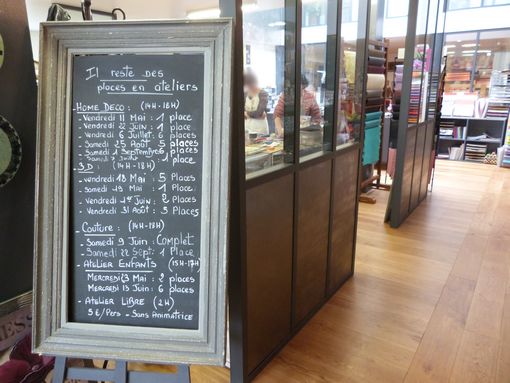 Il reste des
places en ateliers
- Home Deco : (14H-18H)
- Vendredi 11 Mai : 1 place
- Vendredi 22 Juin : 1 place
- Vendredi 6 Juillet : places
- Samedi 25 Août : 5 places
- Samedi 1 Septembre places
- Samedi 7 Juillet : 1 place
- 3D : (14H - 18H)
- Vendredi 18 Mai : 5 Places
- Samedi 19 Mai : 1 Places
- Vendredi 1er Juin : 2 Places
- Vendredi 31 Août : 3 Places
- Couture : (14H-18H)
- Samedi 9 Juin : Complet
- Samedi 22 Sept : 1 Place
- Atelier Enfants (15H-17H)
Mercredi 23 Mai : 2 places
Mercredi 13 Juin : 6 places
- Atelier Libre (2H)
5€/Pers - Sans Animatrice